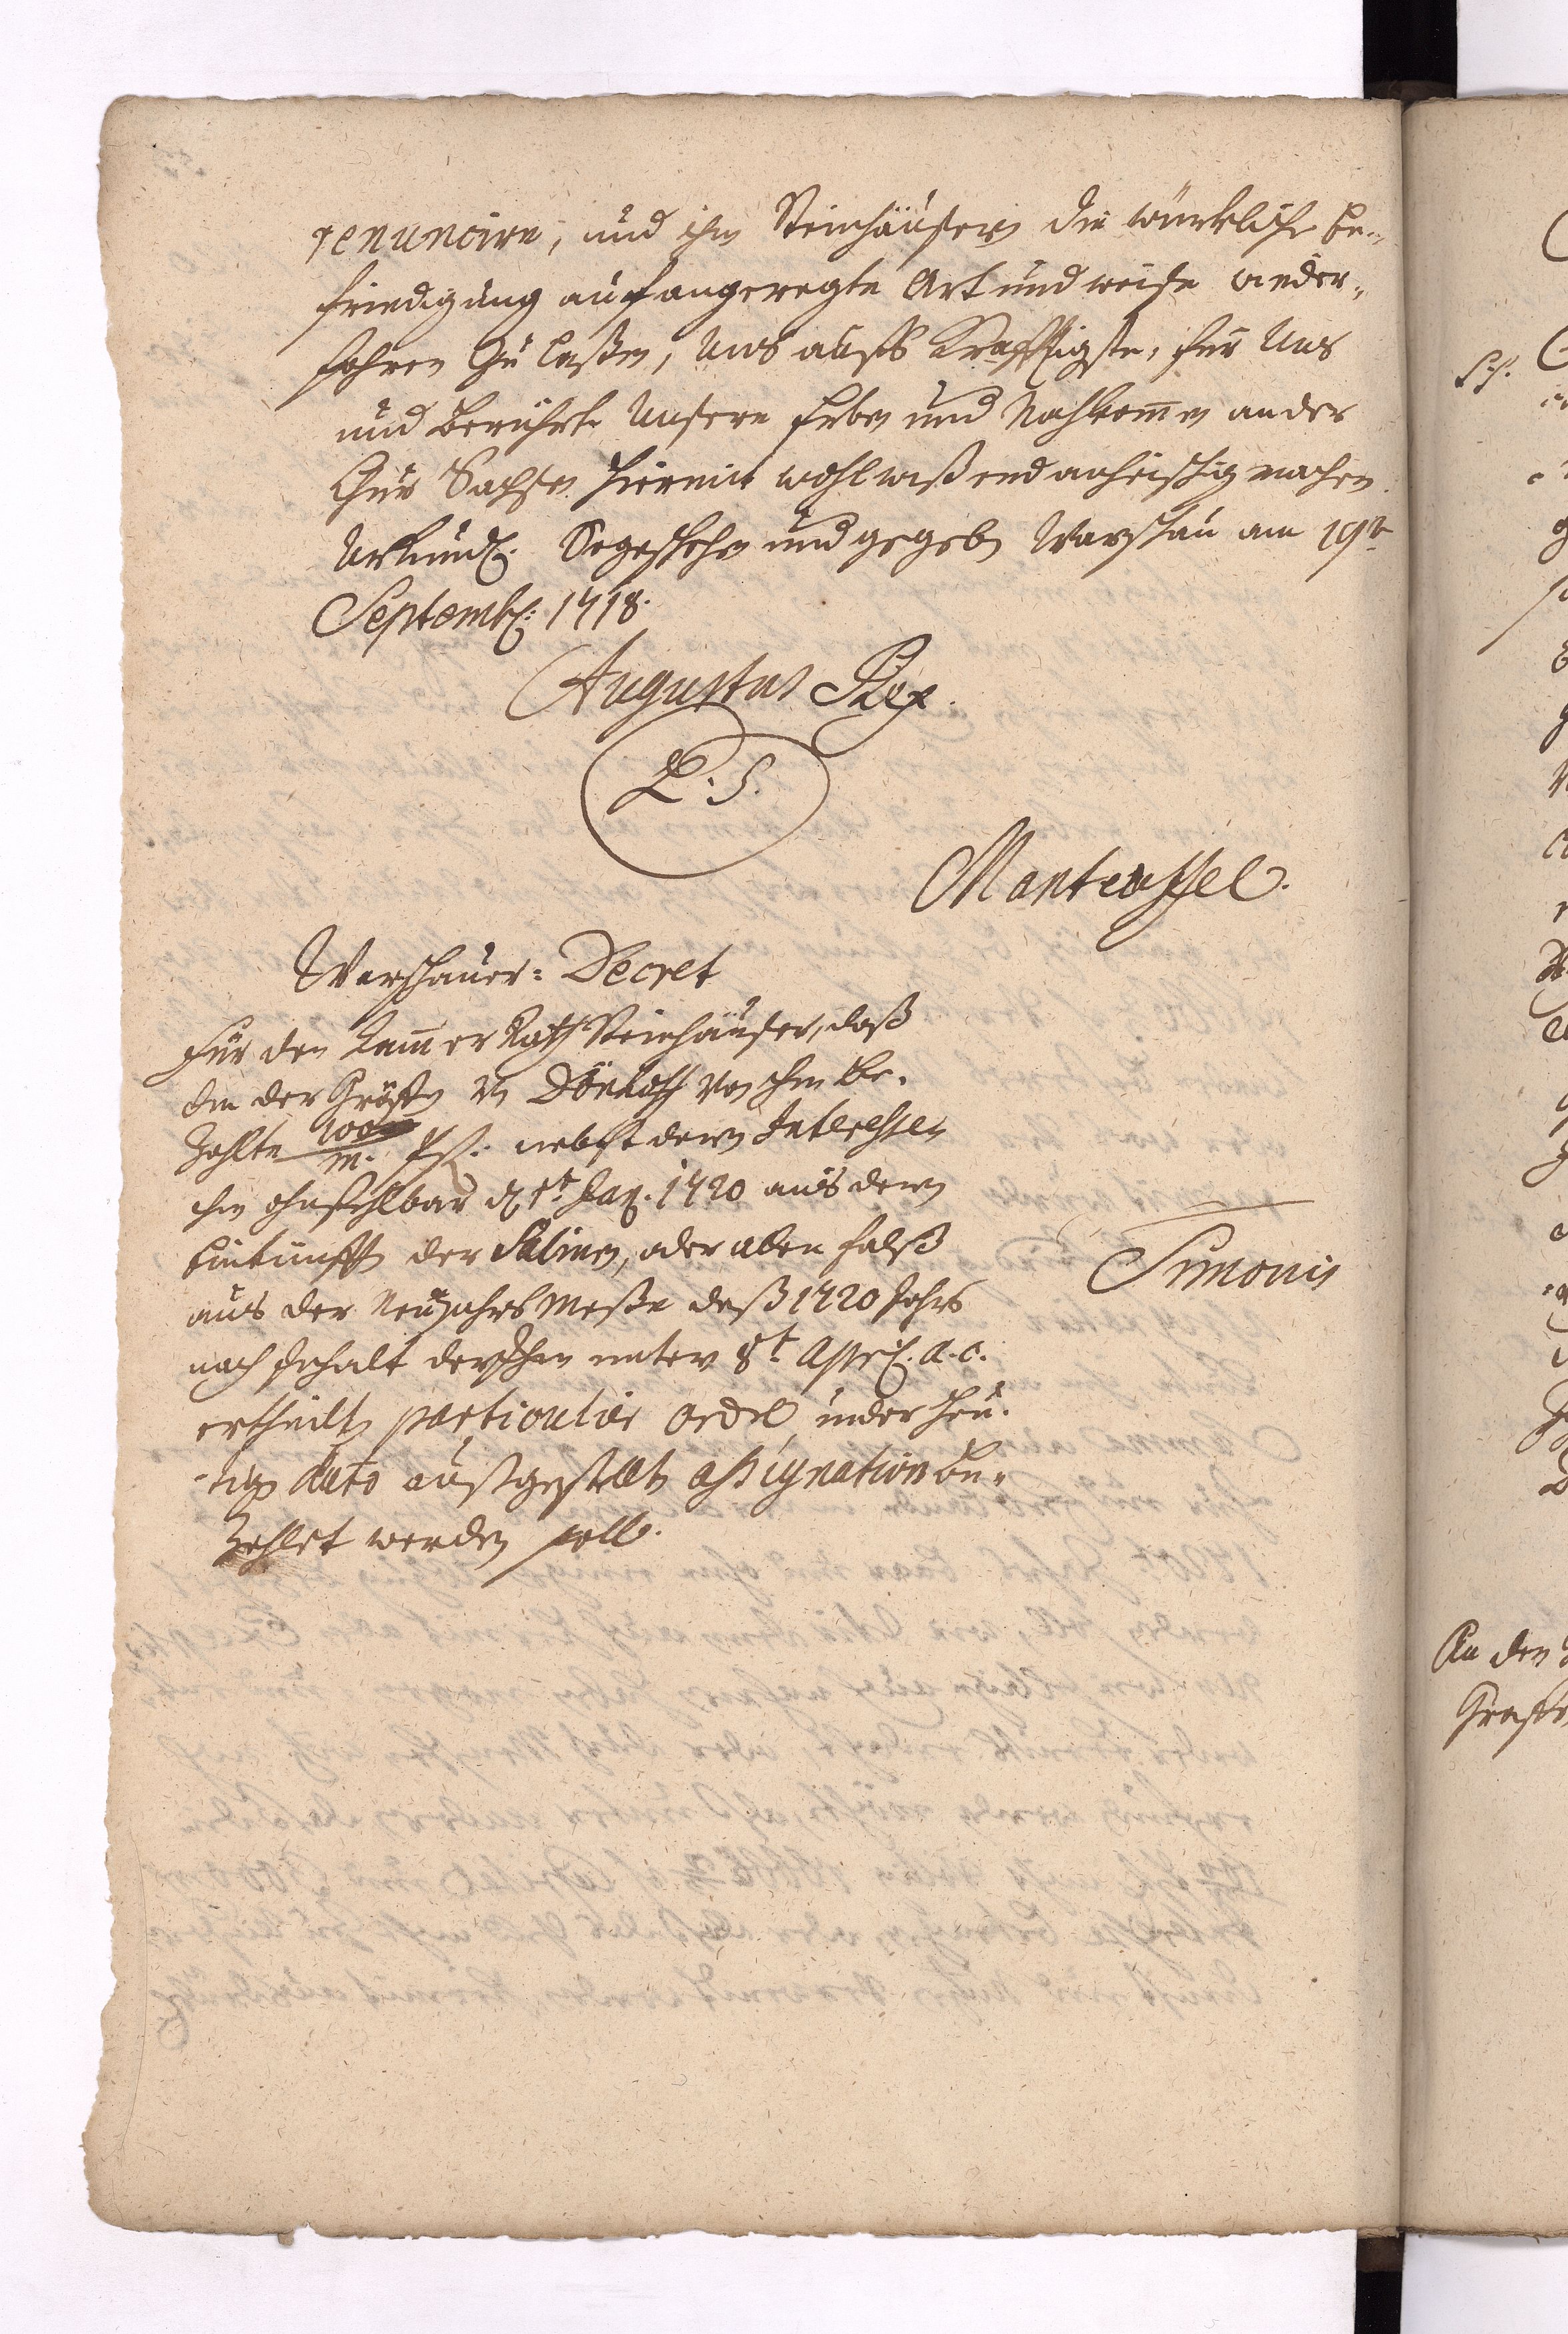 renuncire, und ihm Steinhäusern die würckliche be-
friedigung auf angeregte Art und weise wieder-
fahren zu laßen, Uns aufs Kräfftigste, für Uns
und berührte Unsere Erben und Nachkom̄en an der
Chur Sachsen hiermit wohlwißend anheischig machen.
Uhrkundl. So geschehen und gegeben Warschau am 19t
Septembr: 1718.
Augustus Rex.
L. S.
Manteuffel.
Warschauer-Decret
für den Cam̄er Rath Steinhäuser, daß
die der Gräfin v Dönhoff von ihm be-
zahlte 100/m. f. nebst deren Interessen
ihm ohnfehlbar d 1t Jan. 1720 aus denen
Einkünfften der Salinen, oder allen falß
aus der Neujahrs Meße deß 1720 Jahrs
nach Inhalt der ihm unter 8t April. a. c.
ertheilten particulier Ordre, und der heu-
tigen dato außgestellten assignation be-
zahlet werden soll.
Simonis
An den